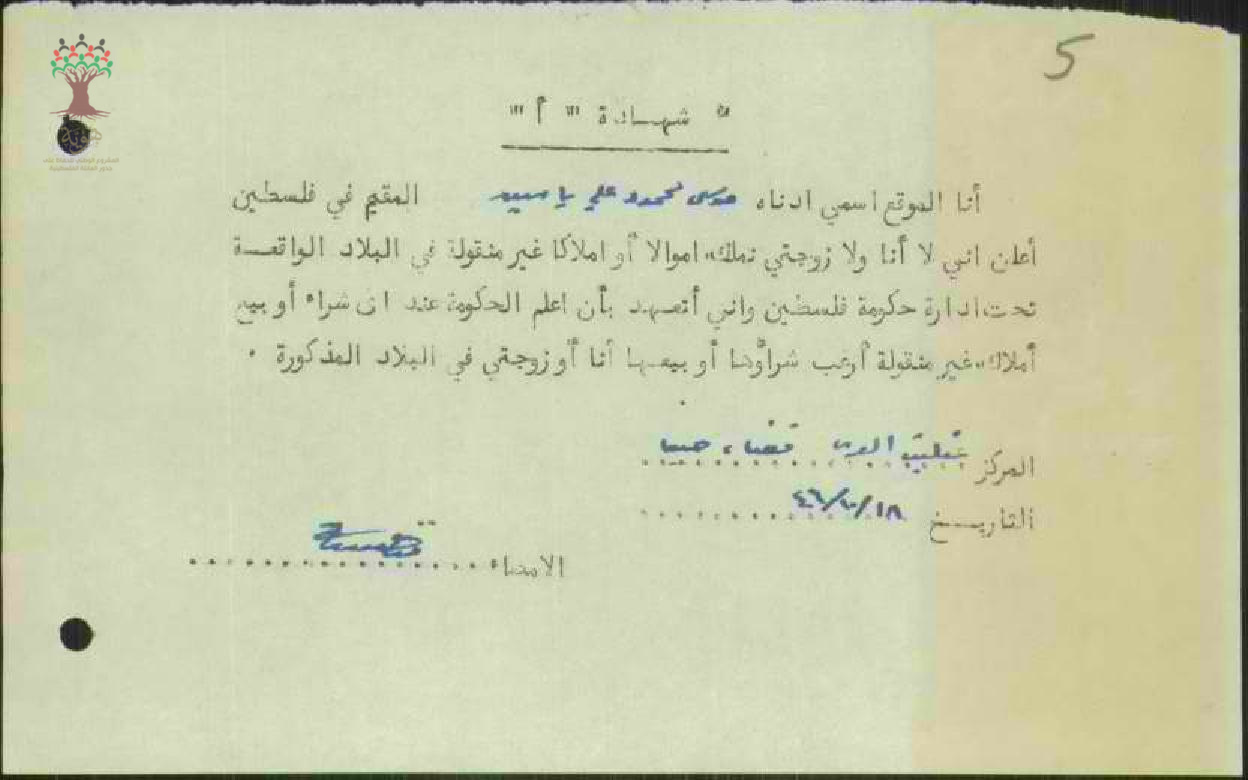 5
" شهادة " أ " "
أنا الموقع اسمي ادناه موسى محمود علي ياسين المقيم في فلسطين
أعلن اني لا أنا ولا زوجتي نملك اموالا أو املاكا غير منقولة في البلاد الواقعة
تحت ادارة حكومة فلسطين واني أتعهد بأن اعلم الحكومة عند اى شراء أو بيع
أملاك غير منقولة أرغب شراؤها أو بيعها أنا أو زوجتي في البلاد المذكورة .
المركز عتليت قضاء حيفا
التاريخ ١٨/٦/٤٦
الامضاء
هوية